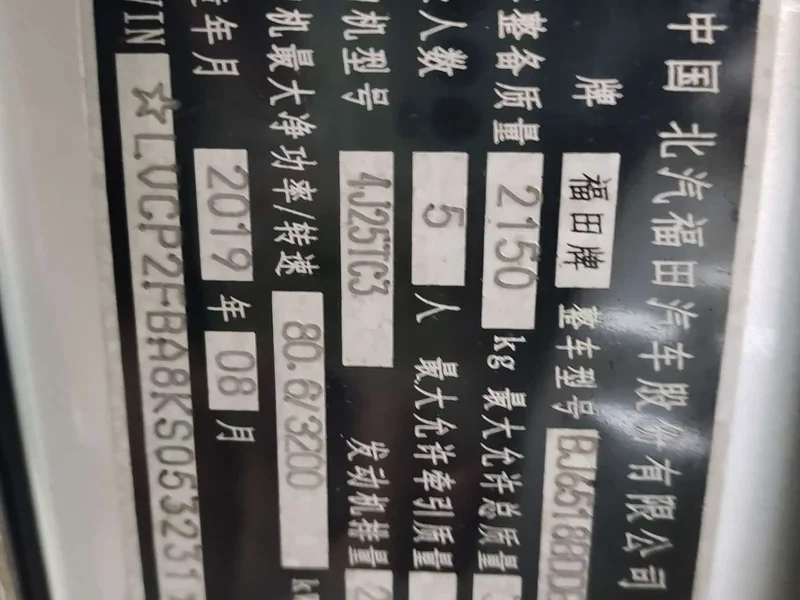 中国 北汽福田汽车股份有限公司
牌 福田牌 整车型号 BJ6518B0D
整备质量 2150 kg 最大允许总质量
人数 5 人 最大允许牵引质量
机型号 4J25TC3 发动机排量 2
机最大净功率/转速 80.6/3200
年月 2019 年 08 月
VIN ☆LVCP2FBA8KS053231